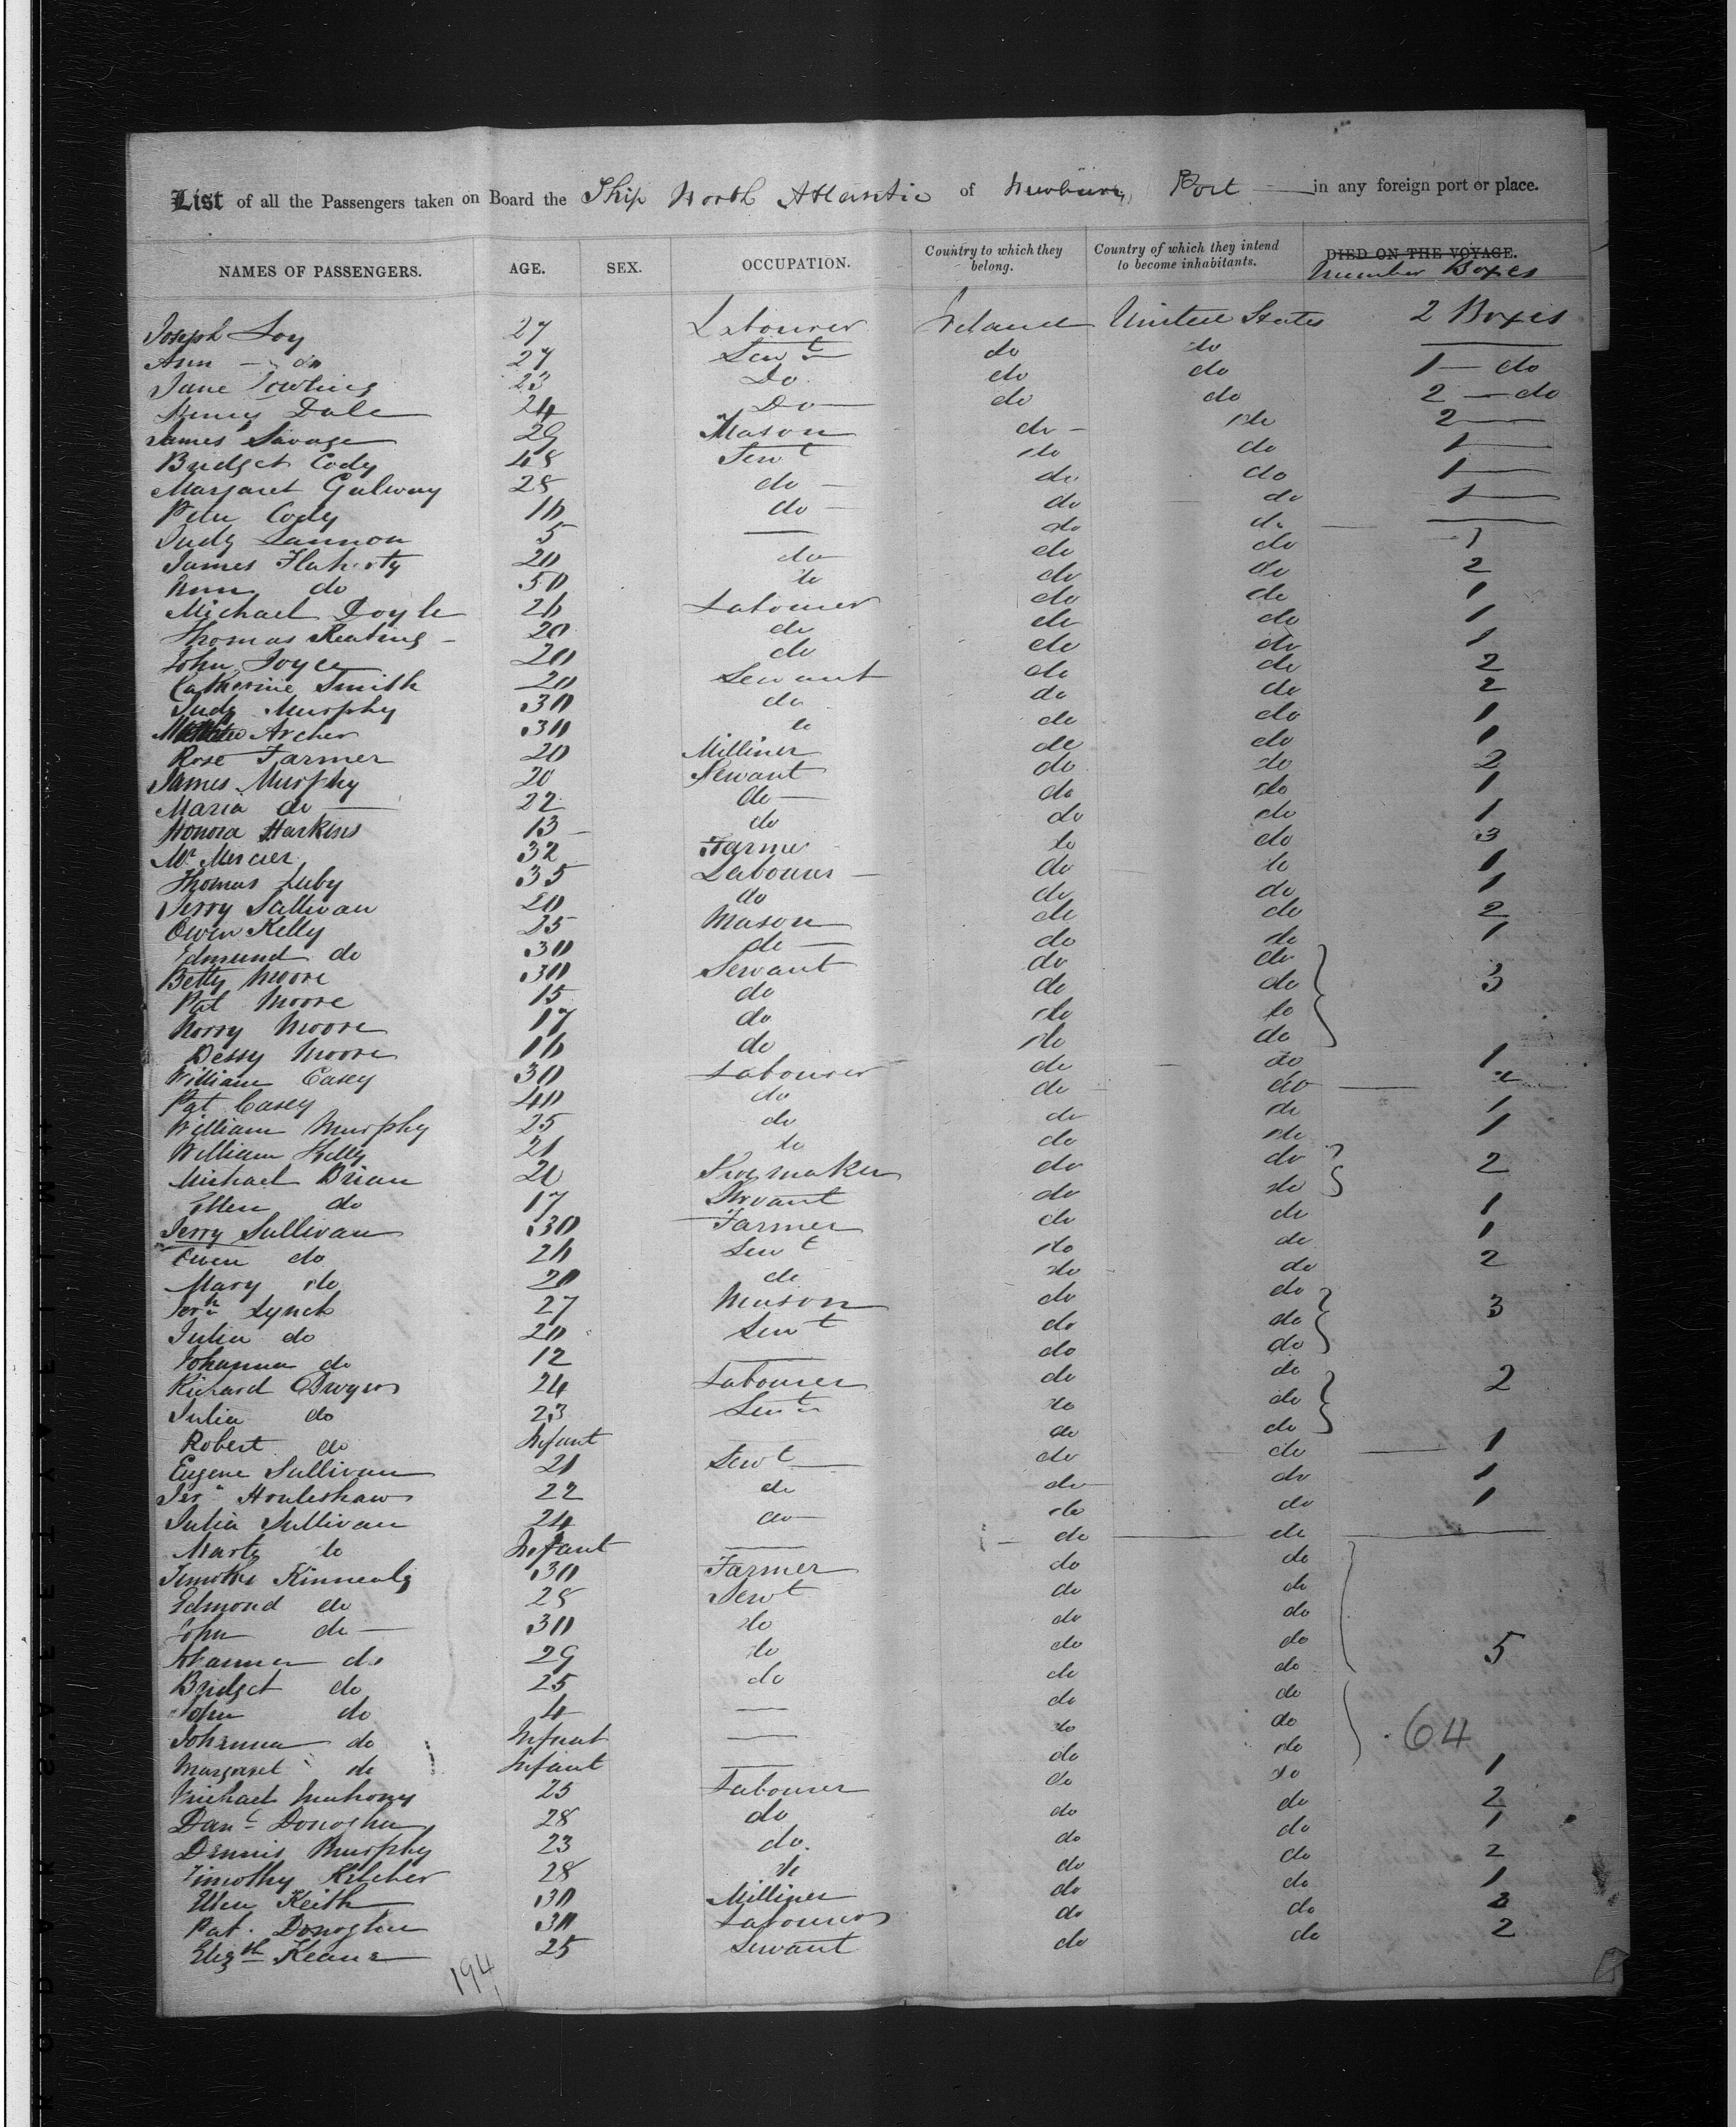 List of all the Passengers taken on Board the Ship North Atlantic of Newbury Port in any foreign port or place.
NAMES OF PASSENGERS. AGE. SEX. OCCUPATION. Country to which they belong. Country of which they intend to become inhabitants. DIED ON THE VOYAGE. Number Boxes
Joseph 27 Labourer Ireland United States 2 Boxes
Ann do 27 Servt do do
Jane 23 Do do do 1 do
Henry Dale 24 Do do do 2 do
James Savage 29 Mason do do 2
Bridget Cody 48 Servt do do 1
Margaret Galway 28 do do do 1
Peter Cody 16 do do do 1
Judy Lannon 5 do do
James Flaherty 20 do do do 1
Ann do 50 do do do 2
Michael Doyle 26 Labourer do do 1
Thomas Keating 20 do do do 1
John Joyce 20 do do do 1
Catherine Smith 20 Servant do do 2
Judy Murphy 30 do do do 2
Archer 30 do do do 1
Rose Farmer 20 Milliner do do 1
James Murphy 20 Servant do do 2
Maria do 22 do do do 1
Honora Harkins 13 do do do 1
Mr Mercier 32 Farmer do do 3
Thomas Luby 35 Labourer do do 1
Jerry Sullivan 20 do do do 1
Owen Kelly 25 Mason do do 2
Edmund do 30 do do do 1
Betty Moore 30 Servant do do
Pat Moore 15 do do do 3
Norry Moore 17 do do do
Bessy Moore 16 do do do
William Casey 30 Labourer do do 1
Pat Casey 40 do do do
William Murphy 25 do do do 1
William Kelly 21 do do do 1
Michael Brian 20 do do 2
Ellen do 17 Servant do do
Jerry Sullivan 30 Farmer do do 1
Owen do 26 Servt do do 1
Mary do 20 do do do 2
Jerh Lynch 27 Mason do do
Julia do 20 Servt do do 3
Johanna do 12 do do
Richard Dwyer 24 Labourer do do
Julia do 23 Servt do do 2
Robert do Infant do do
Eugene Sullivan 21 Servt do do 1
22 do do do 1
Julia Sullivan 24 do do do 1
Marty do Infant do do
30 Farmer do do
Edmond do 28 Servt do do
John do 30 do do do
Johanna do 29 do do do 5
Bridget do 25 do do do
John do 4 do do
Johanna do Infant do do 64
Margaret do Infant do do
Michael Mahony 25 Labourer do do 1
Danl Donoghue 28 do do do 2
Dennis Murphy 23 do do do 1
Timothy Kilcher 28 do do do 2
Ellen Keith 30 Milliner do do 1
Pat. Donoghue 30 Labourer do do
Elizth Keane 25 Servant do do 2
194